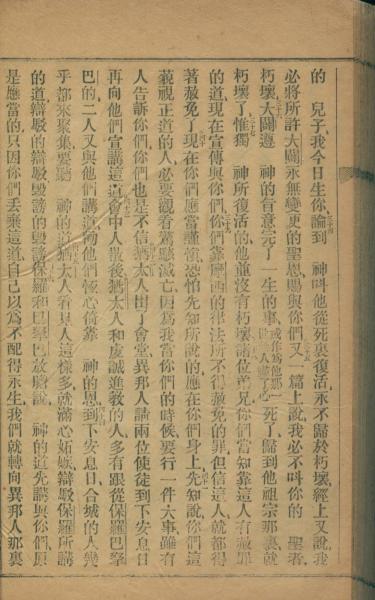 的　兒子、我今日生你、論到　神叫他從死裏復活、永不歸於朽壞、經上又說、我
必將所許大闢永無變更的聖恩、賜與你們、又一篇上說、我必不叫你的　聖者、
朽壞、大闢遵　神的旨意、完了一生的事、死了、歸到他祖宗那裏、就
朽壞了、惟獨　神所復活的他、並沒有朽壞、諸位弟兄、你們當知靠這人有赦罪
的道、現在宣傳與你們、你們靠摩西的律法、所不得赦免的罪、但信這人、就都得
著赦免了、現在你們應當謹愼、恐怕先知所說的、應在你們身上、先知說、你們這
藐視正道的人、必要觀看、驚駭滅亡、因爲我當你們的時候、要行一件大事、雖有
人告訴你們、你們也是不信、猶太人出了會堂、異邦人請兩位使徒到下安息日
再向他們宣講這道、會中人散後、猶太人和虔誠進敎的人、多有跟從保羅巴拏
巴的、二人又與他們講道、勸他們恆心倚靠　神的恩、到下安息日、合城的人、幾
乎都來聚集、要聽　神的道、猶太人看見人這樣多、就滿心妒嫉、辯駁保羅所講
的道、辯駁的辯駁、毀謗的毀謗、保羅和巴拏巴放膽說、　神的道先講與你們、原
是應當的、只因你們丟棄這道、自己以爲不配得永生、我們就轉向異邦人那裏